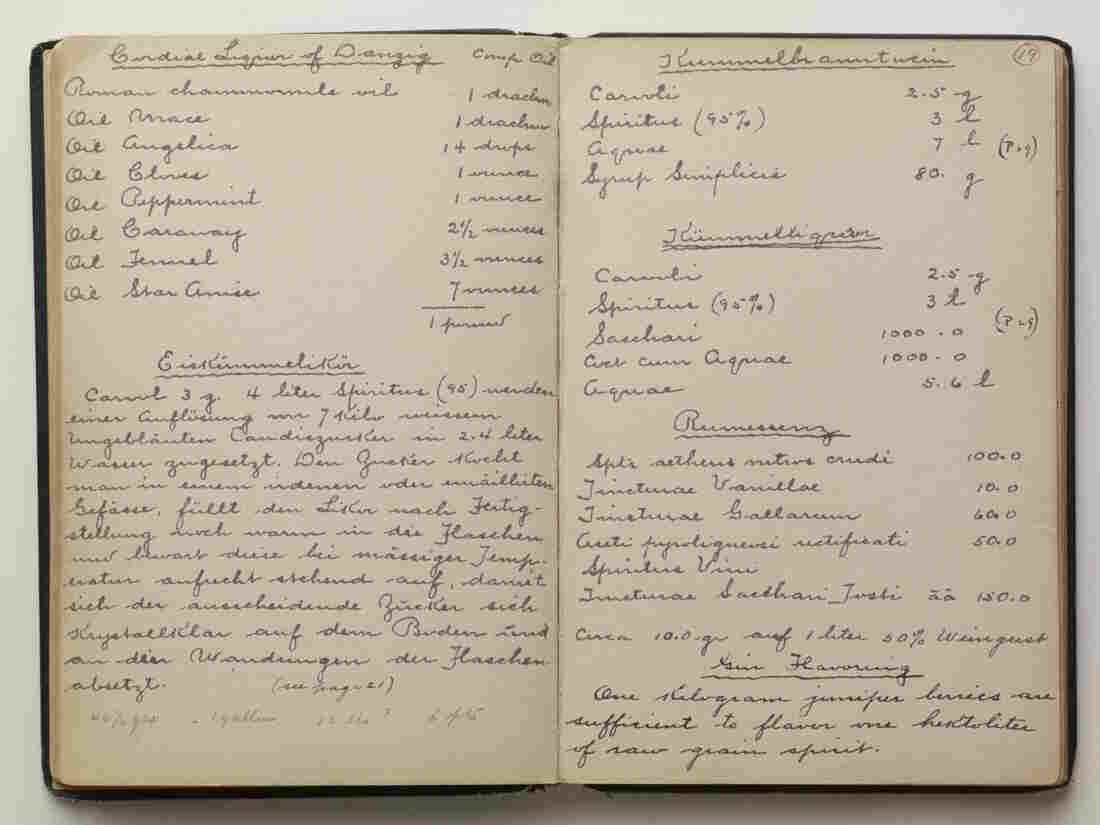 Cordial Liqiur of Danzig Comp Oil
Roman chammomile oil 1 drachm
Oil Mace 1 drachm
Oil Angelica 14 drops
Oil Cloves 1 ounce
Oil Peppermint 1 ounce
Oil Caraway 2½ ounces
Oil Fennel 3½ ounces
Oil Star Anise 7 ounces
1 pound
Eiskümmelikör
Carvol 3 g. 4 liter Spiritus (95) werden
einer Auflösung von 7 Kilo weissem
Ungebläuten Candiszucker in 2.4 liter
Wasser zugesetzt. Den Zucker kocht
man in einem irdenen oder emäillirten
Gefässe, füllt den Likör nach Fertig-
stellung noch warm in die Flaschen
und bewart diese bei mässiger Temp-
eratur aufrecht stehend auf, damit
sich der ausscheidende Zucker sich
Krystallklar auf dem Boden und
an den Wandungen der Flaschen
absetzt. (see page 21)
1 gallon
19
Kummelbranntwein
Carvoli 2.5 g
Spiritus (95%) 3 l
Aquae 7 l
Syrup Simplicis 80. g
Kümmelliqueur
Carvoli 2.5 g
Spiritus (95%) 3 l
Sacchari 1000.0
Coct cum Aquae 1000.0
Aquae 5.6 l
Rumessenz
Sptr aetheris nitros crudi 100.0
Tincturae Vanillae 10.0
Tincturae Gallarum 60.0
Aceti pyrolignosi rectificati 50.0
Spiritus Vini
Tincturae Sacchari Tosti āā 150.0
Circa 10.0 gr auf 1 liter 50% Weingeist
Gin Flavoring
One Kilogram juniper berries are
sufficient to flavor one hektoliter
of raw grain spirit.